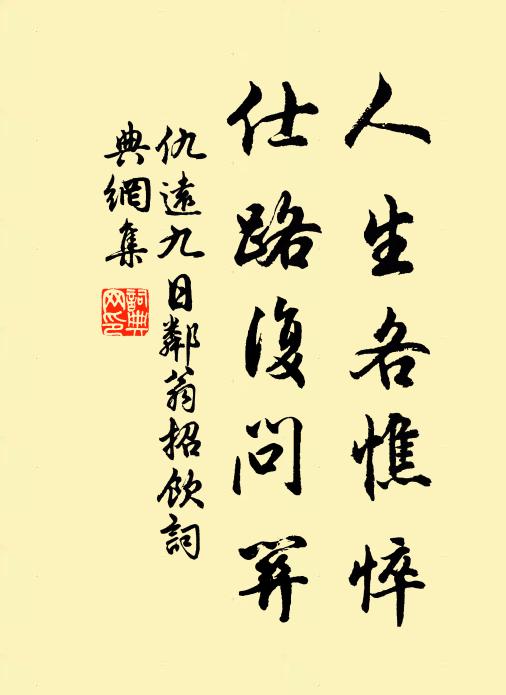 人生各憔悴
仕路復問
仇遠九日鄰翁招飲詞
典網集
詞典
网印